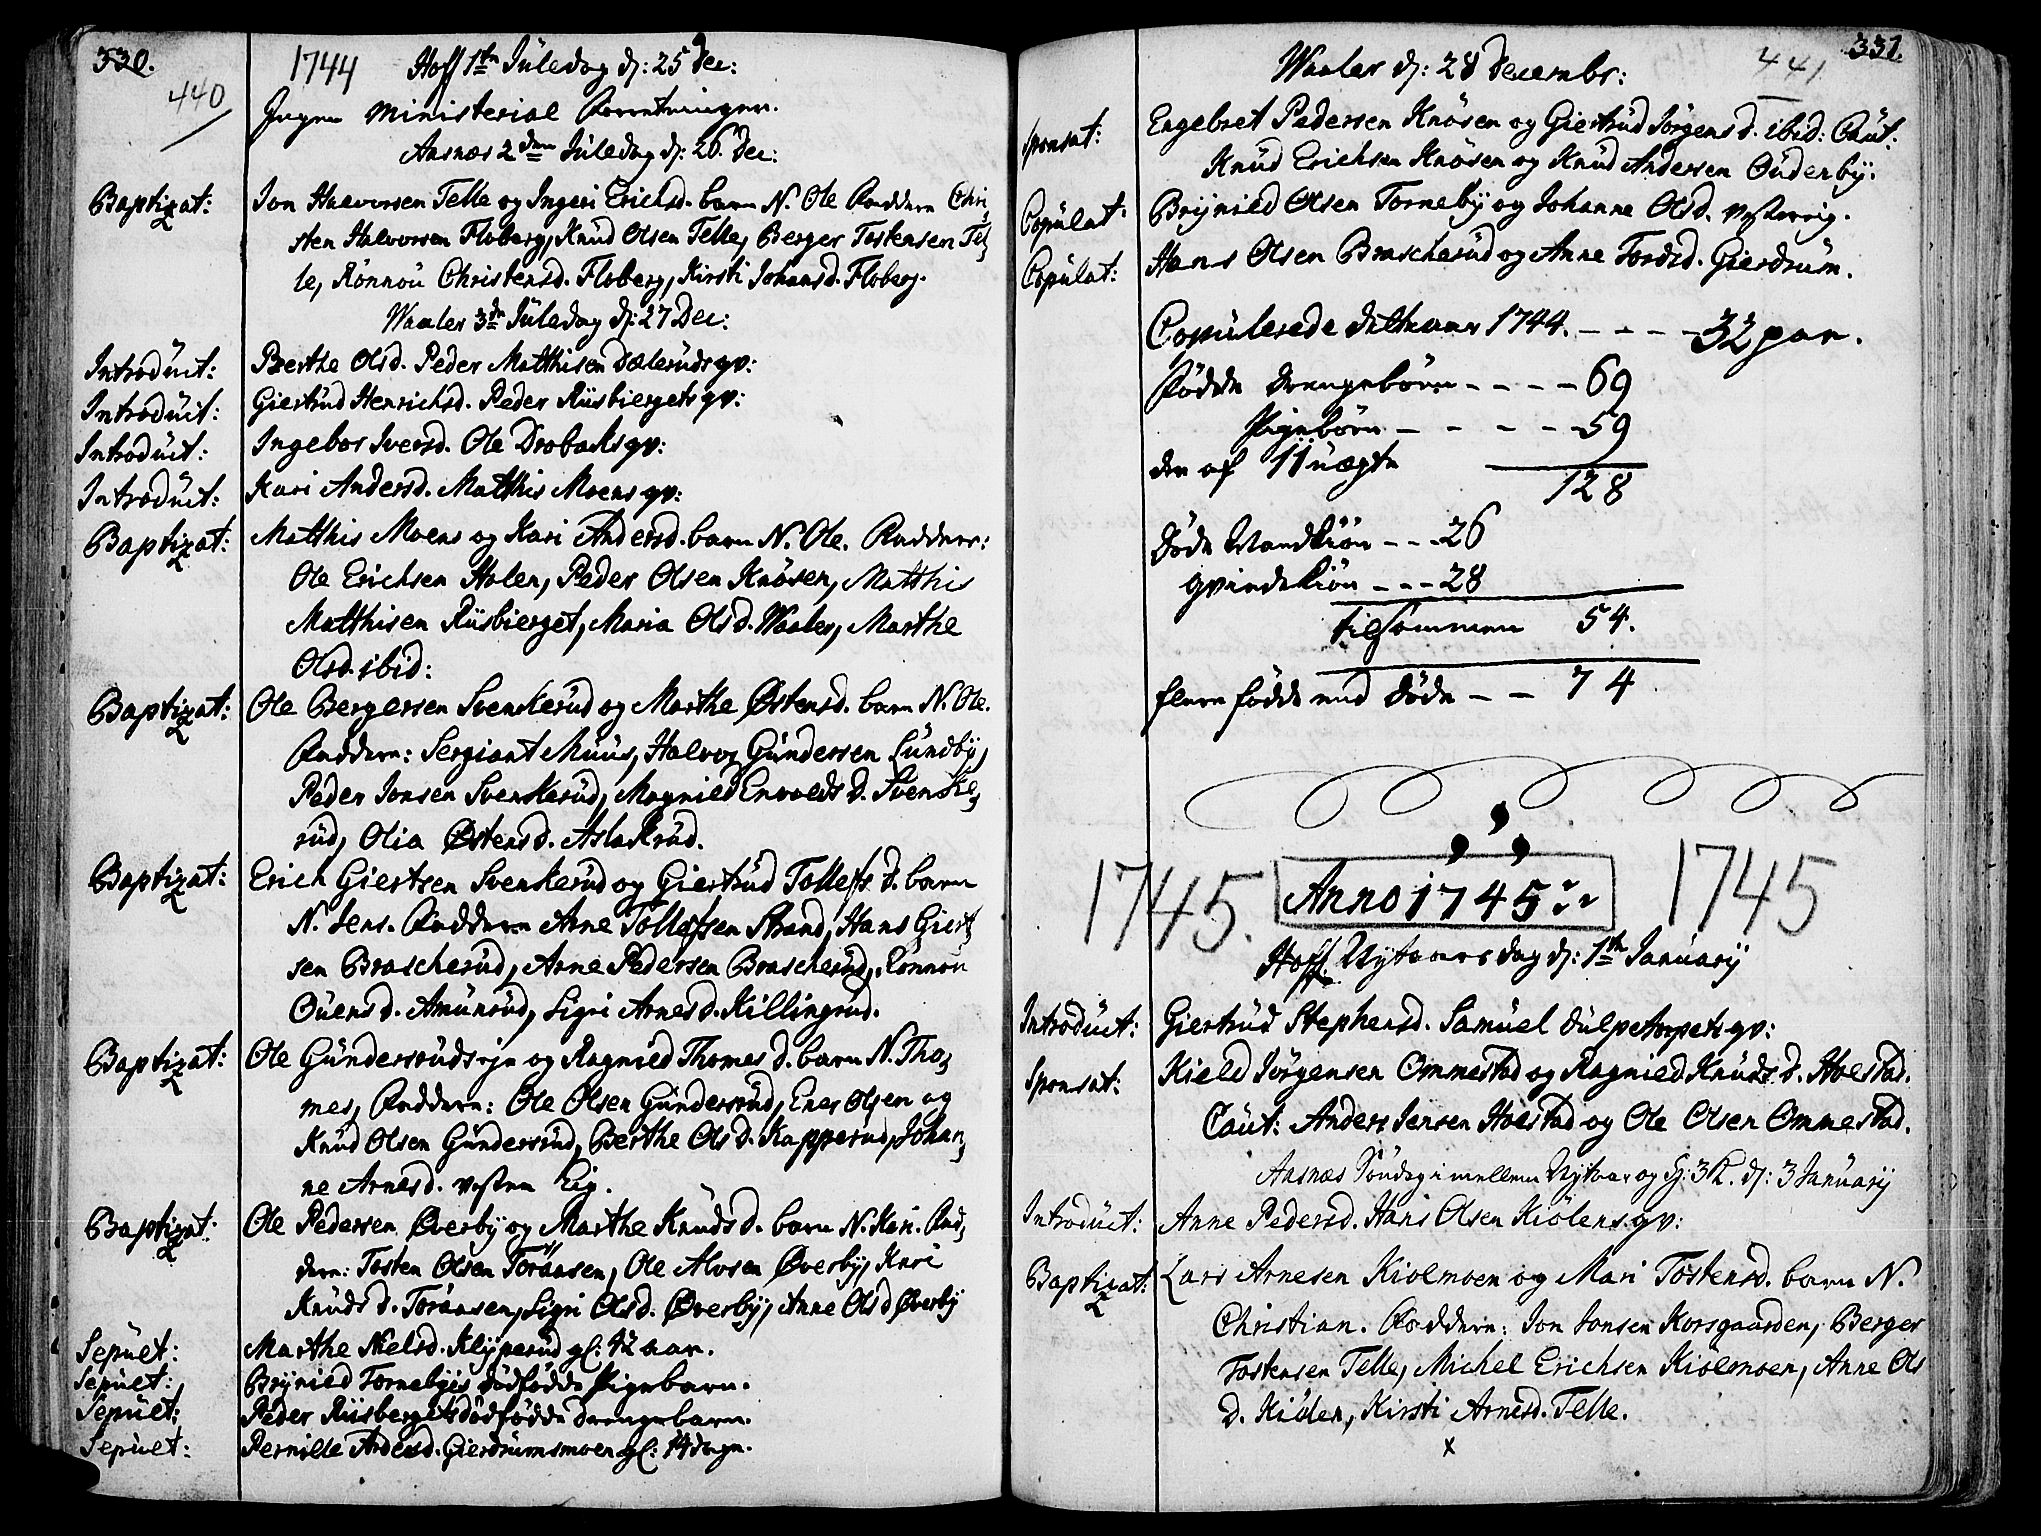 330.
440
1744 Hoff 1te Juledag d: 25 Dec:
Ingen Ministerial Forretninger.
Aasnæs 2den Juledag d: 26. Dec:
Baptizat: Jon Haavorsen Telle og Ingeri Erichsd. barn N. Ole Faddern Chri,
sten Halvorsen Floberg, Knud Olsen Telle, Berger Tostensen Tel,
le, Rønnou Christensd. Floberg, Kirsti Johansd. Floberg.
Waaler 3de Juledag d: 27 Dec:
Introduct: Berthe Olsd. Peder Matthisen Dælerudsqv:
Introduct: Giertrud Henrichsd. Peder Riisbiergets qv:
Introduct: Ingebor Iversd. Ole Drobaks qv:
Introduct: Kari Andersd. Matthis Moens qv:
Baptizat: Matthis Moens og Kari Andersd. barn N. Ole. Faddere:
Ole Erichsen Holen, Peder Olsen Knøsen, Matthis
Matthisen Riisbierget, Maria Olsd. Waaler, Marthe
Olsd. ibid:
Baptizat: Ole Bergersen Svenkerud og Marthe Østensd. barn N. Ole.
Faddere: Sergiant Muus, Halvor Gundersen Lundby,
Peder Jonsen Svenkerud, Magnild Envoldsd. Svenke,
rud, Olia Østensd. Aslakrud.
Baptizat: Erich Giertsen Svenkerud og Giertrud Tollefsd. barn
N. Jens. Faddern Arne Tollefsen Strand, Hans Giert,
sen Brascherud, Arne Pedersen Brascherud, Rønnou
Ouensd. Amunrud, Sigri Arnesd. Killingrud.
Baptizat: Ole Gundersrudseje og Ragnild Thomesd. barn N. Tho,
mes, Faddern: Ole Olsen Gundersrud, Ener Olsen og
Knud Olsen Gundersrud, Berthe Olsd. Kapperud, Johan,
ne Arnesd. vesten Eig.
Baptizat: Ole Pedersen Øverby og Marthe Knudsd. barn N. Kari. Fad,
dern: Tosten Olsen Toraasen, Ole Alvsen Øverby, Kari
Knudsd. Toraasen, Sigri Olsd. Øverby, Anne Olsd Øverby
Sepult: Marthe Nielsd. Klypperud gl: 42 aar.
Sepult: Brynild Tornebyes dødfødde Pigebarn.
Sepult: Peder Riisbergets dødfødde drengebarn.
Sepult: Pernille Andersd. Gierdrumsmoen gl: 14 dage.
331.
441
Waaler d: 28 Decembr:
Sponsat: Engebret Pedersen Knøsen og Giertrud Jørgensd. ibid: Caut:
Knud Erichsen Knøsen og Knud Andersen Ouderby.
Copulat: Brynild Olsen Torneby og Johanne Olsd. vesterrig.
Copulat: Hans Olsen Brascherud og Anne Tordsd. Gierdrum.
Copulerede dette aar 1744. - - - - 32 par.
Fødde Drengebørn - - - - 69
Pigebørn - - - - 59
der af 11 uægte 128
Døde Mandkiøn - - - 26
qvindekiøn - - - 28
tilsammen 54.
flere fødde end døde - - 74
1745. Anno 1745 1745
Hoff Nytaarsdag d: 1te January
Introduct: Giertrud Stephensd. Samuel Dulpetorpets qv:
Sponsat: Kield Jørgensen Ommestad og Ragnild Knudsd. Hoelstad.
Caut: Anders Jensen Hoelstad og Ole Olsen Ommestad.
Aasnæs Søndag imellem Nytaar og H: 3 K. d: 3 January
Introduct: Anne Pedersd. Hans Olsen Kiølens qv:
Baptizat: Lars Arnesen Kiolmoen og Mari Tostensd. barn N.
Christian. Faddern: Jon Jonsen Korsgaarden, Berger
Tostensen Telle, Michel Erichsen Kiolmoen, Anne Ols
D. Kiølen, Kirsti Arnesd. Telle.
x